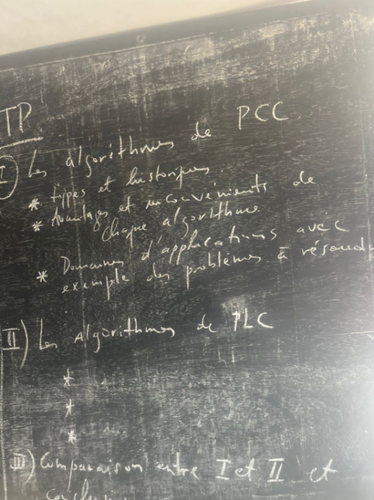 TP
I) Les algorithmes de PCC
* types et historiques
* Avantages et inconvenients de
chaque algorithme
* Domaines d'applications avec
exemple des problèmes à résoudre
II) Les algorithmes de PLC
*
*
*
III) Comparaison entre I et II et
conclusion